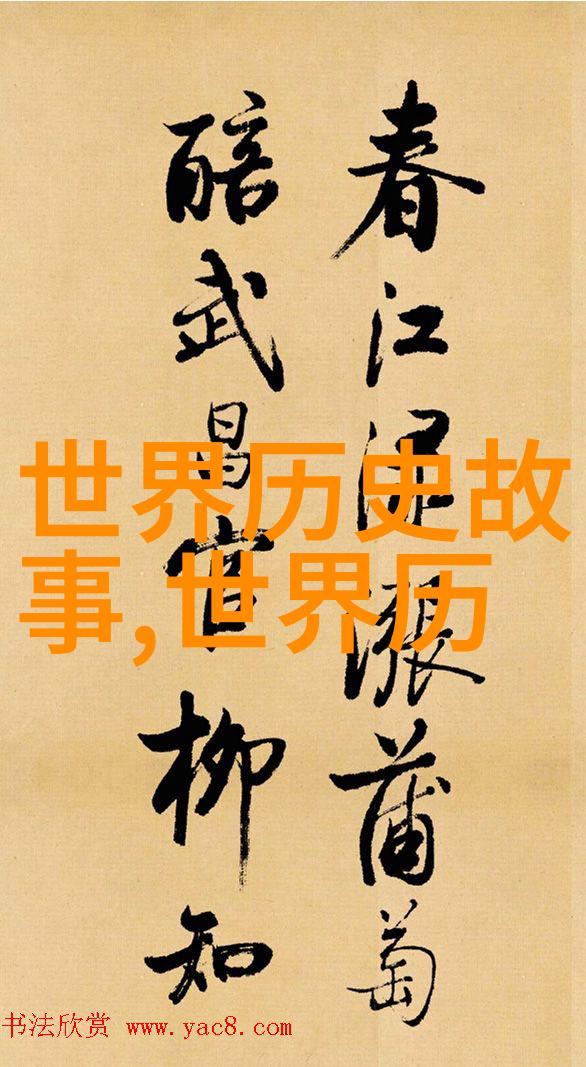 春江淥漲蒲萄
醅武昌官柳知
世界历史故
事,世界历
书法欣赏 www.yac8.com